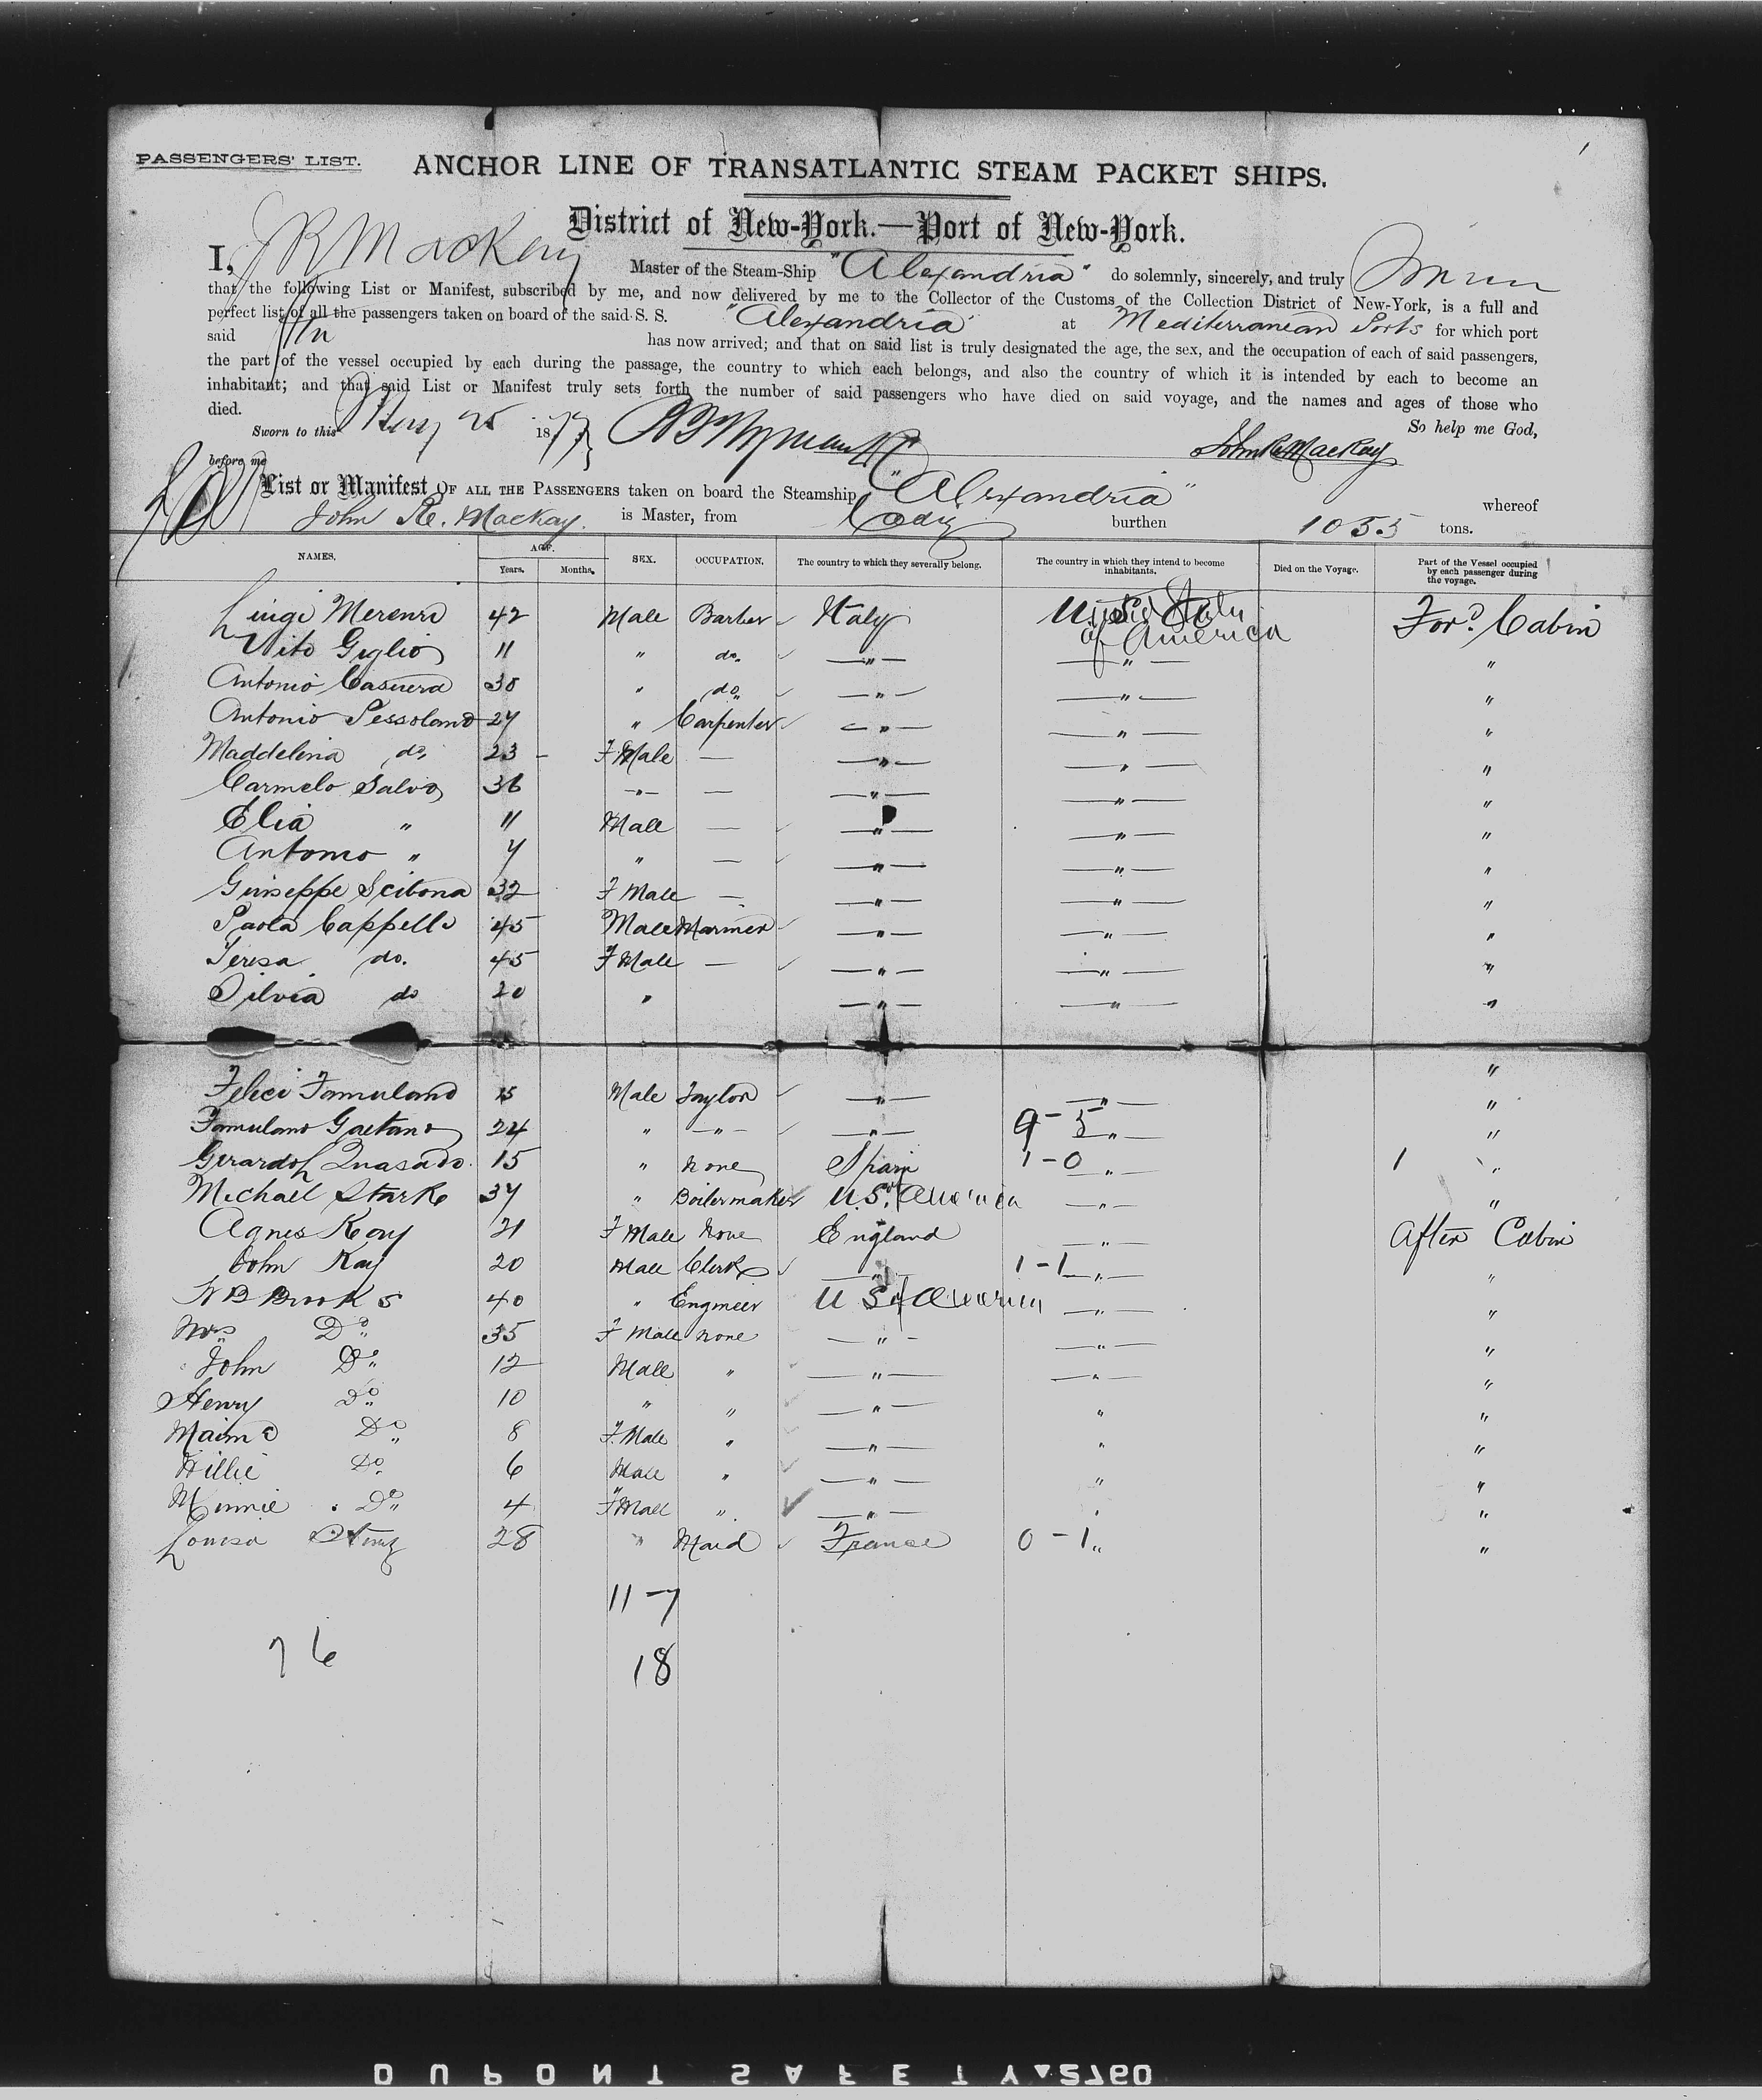 1
PASSENGERS' LIST. ANCHOR LINE OF TRANSATLANTIC STEAM PACKET SHIPS.
District of New-York.—Port of New-York.
I, J R MacKay Master of the Steam-Ship "Alexandria" do solemnly, sincerely, and truly
that the following List or Manifest, subscribed by me, and now delivered by me to the Collector of the Customs of the Collection District of New-York, is a full and
perfect list of all the passengers taken on board of the said S. S. "Alexandria" at Mediterranean Ports for which port
said has now arrived; and that on said list is truly designated the age, the sex, and the occupation of each of said passengers,
the part of the vessel occupied by each during the passage, the country to which each belongs, and also the country of which it is intended by each to become an
inhabitant; and that said List or Manifest truly sets forth the number of said passengers who have died on said voyage, and the names and ages of those who
died. So help me God,
Sworn to this May 25 1877 John R. MacKay
before me
List or Manifest OF ALL THE PASSENGERS taken on board the Steamship "Alexandria" whereof
John R. Mackay. is Master, from Cadiz burthen 1055 tons.
NAMES. AGE. Years. Months. SEX. OCCUPATION. The country to which they severally belong. The country in which they intend to become inhabitants. Died on the Voyage. Part of the Vessel occupied by each passenger during the voyage.
Luigi Merenri 42 Male Barber Italy United States of America For.d Cabin
Vito Giglio 11 " do. " " "
Antonio Casnera 38 " do " " "
Antonio Pessolano 27 " Carpenter " " "
Maddelina do. 23 - F Male — " " "
Carmelo Salvo 36 " — " " "
Elia " 11 Male — " " "
Antonio " 7 " — " " "
Giuseppe Scibona 32 F Male — " " "
Paola Cappello 45 Male Mariner " " "
Teresa do. 45 F Male — " " "
Silvia do 20 " " " "
"
Felici Famulano 15 Male Taylor " " "
Famulano Gaetano 24 " " " 9-5 " "
Girardo Quasado 15 " None Spain 1-0 " 1 "
Michael Starke 37 " Boilermaker U.S. of America " "
Agnes Kay 21 F Male None England " After Cabin
John Kay 20 Male Clerk " 1-1 " "
W B Brooks 40 " Engineer U S of America " "
Mrs Do 35 F Male None " " "
John Do 12 Male " " " "
Henry Do 10 " " " " "
Maima Do 8 F. Male " " " "
Willie Do 6 Male " " " "
Minnie Do 4 F Male " " " "
Louisa 28 " Maid France 0-1 " "
11-7
76
18
DUPONT SAFETY 2760